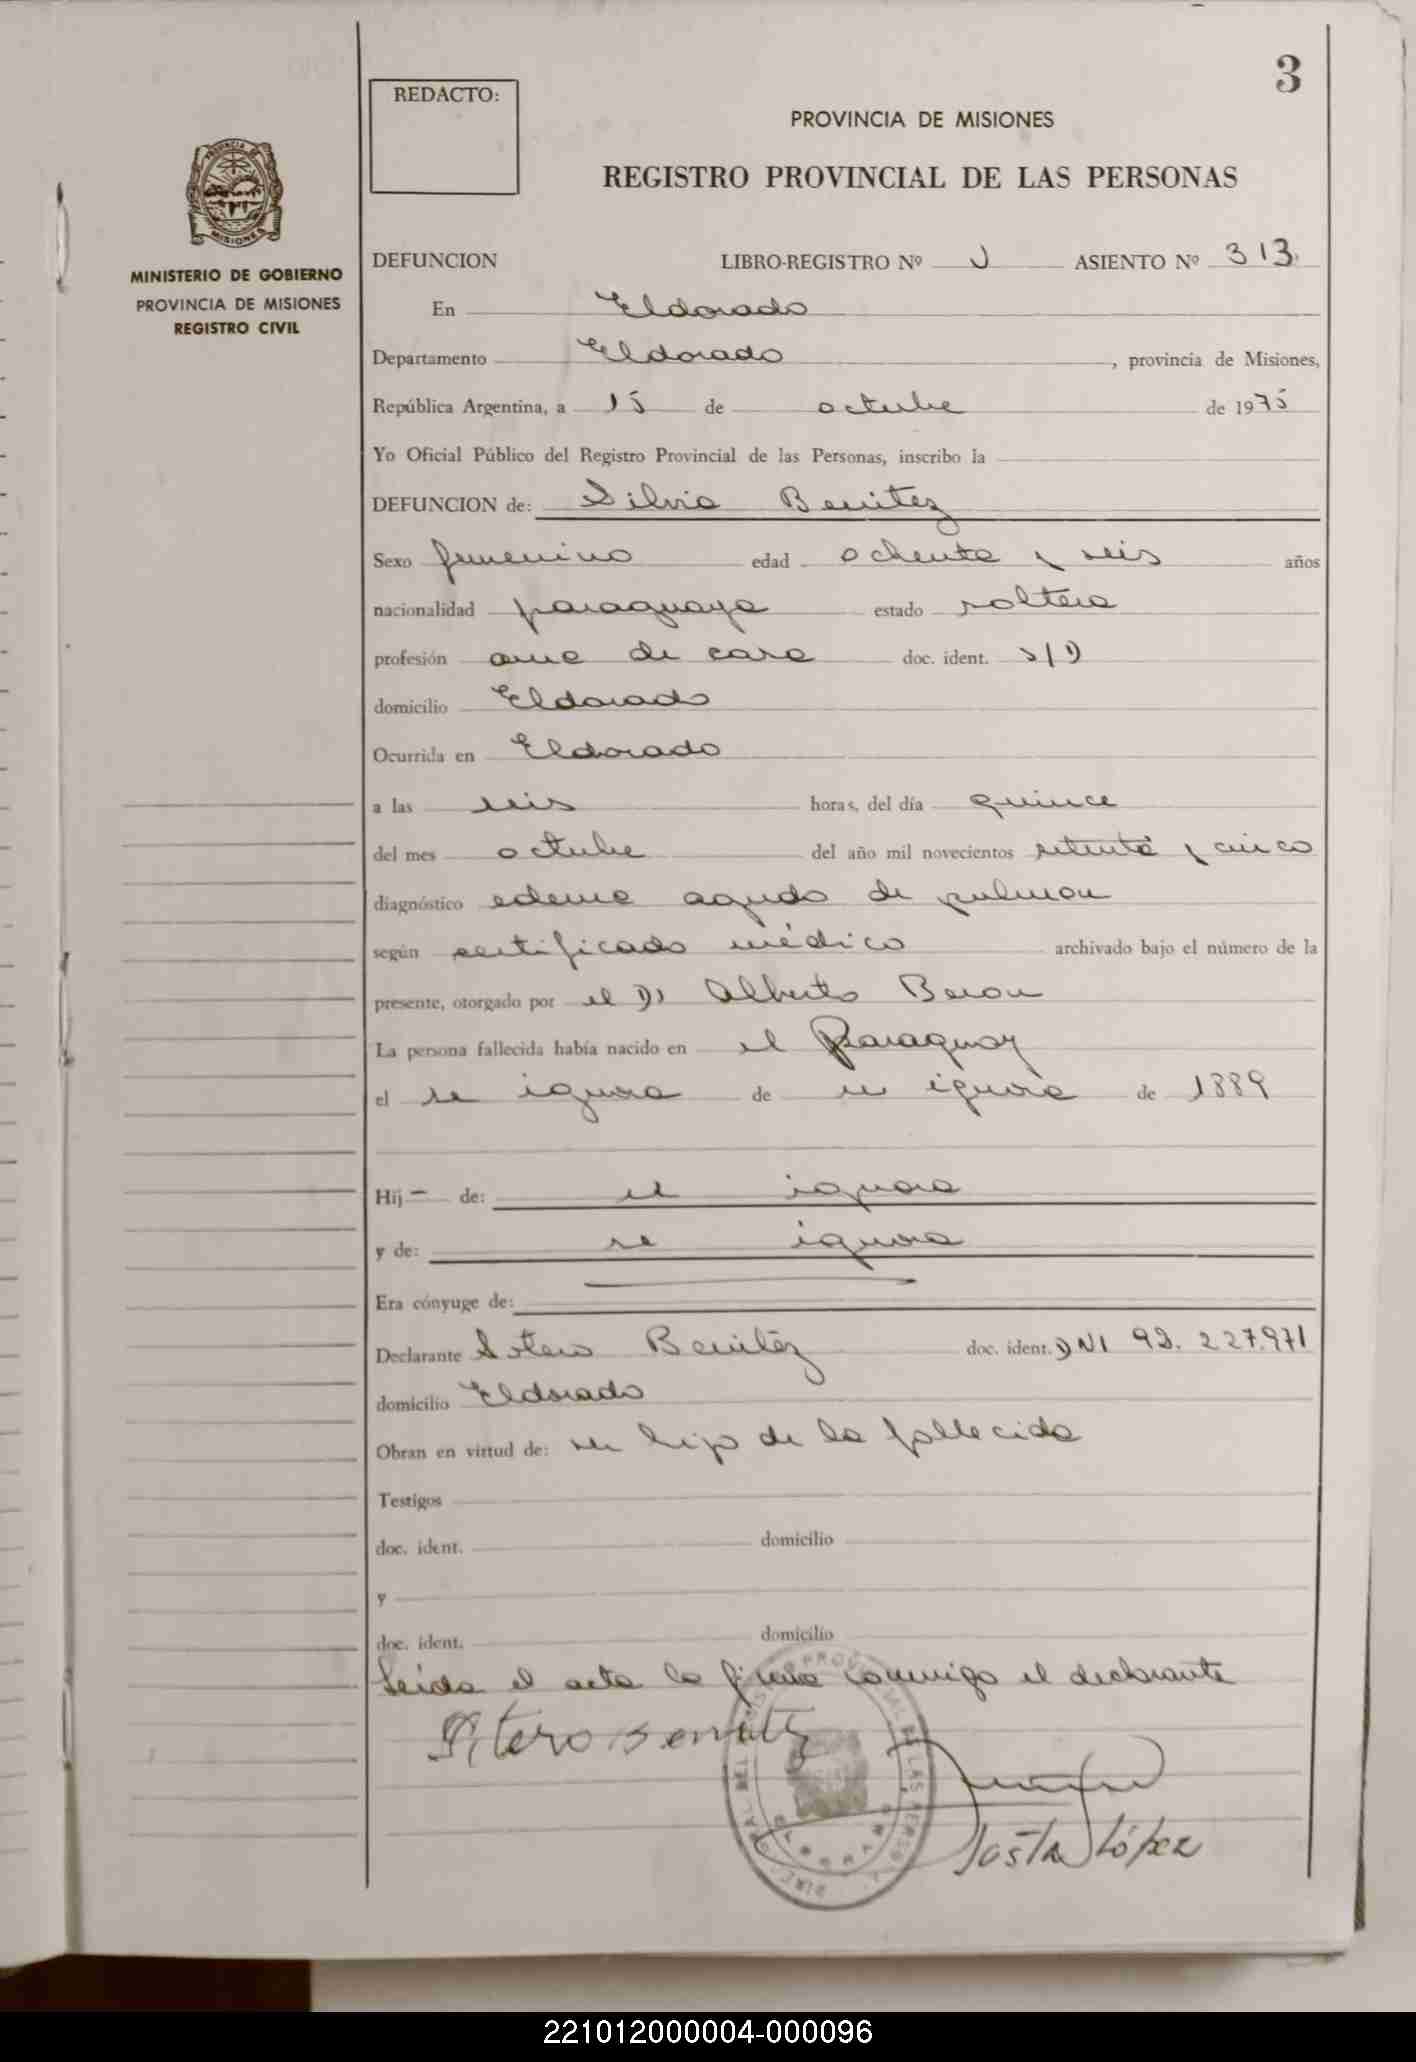 3
REDACTO:
PROVINCIA DE MISIONES
REGISTRO PROVINCIAL DE LAS PERSONAS
MINISTERIO DE GOBIERNO
PROVINCIA DE MISIONES
REGISTRO CIVIL
DEFUNCION LIBRO-REGISTRO Nº J ASIENTO Nº 313
En Eldorado
Departamento Eldorado, provincia de Misiones,
República Argentina, a 15 de octubre de 1975
Yo Oficial Público del Registro Provincial de las Personas, inscribo la
DEFUNCION de: Silvia Benitez
Sexo femenino edad ochenta y seis años
nacionalidad paraguaya estado soltera
profesión ama de casa doc. ident. S/D
domicilio Eldorado
Ocurrida en Eldorado
a las seis horas, del día quince
del mes octubre del año mil novecientos setenta y cinco
diagnóstico edema agudo de pulmon
según certificado médico archivado bajo el número de la
presente, otorgado por el Dr Alberto Beron
La persona fallecida había nacido en el Paraguay
el se ignora de se ignora de 1889
Hij— de: se ignora
y de: se ignora
Era cónyuge de:
Declarante Sotero Benitez doc. ident. DNI 92.227.971
domicilio Eldorado
Obran en virtud de: ser hijo de la fallecida
Testigos
doc. ident. domicilio
y
doc. ident. domicilio
Leída el acta la firma conmigo el declarante
Sotero Benitez
López
221012000004-000096